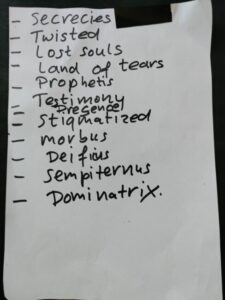 - Secrecies
- Twisted
- Lost souls
- Land of tears
- Prophetis
- Testimony
Presence
- Stigmatized
- morbus
- Deificus
- Sempiternus
- Dominatrix.